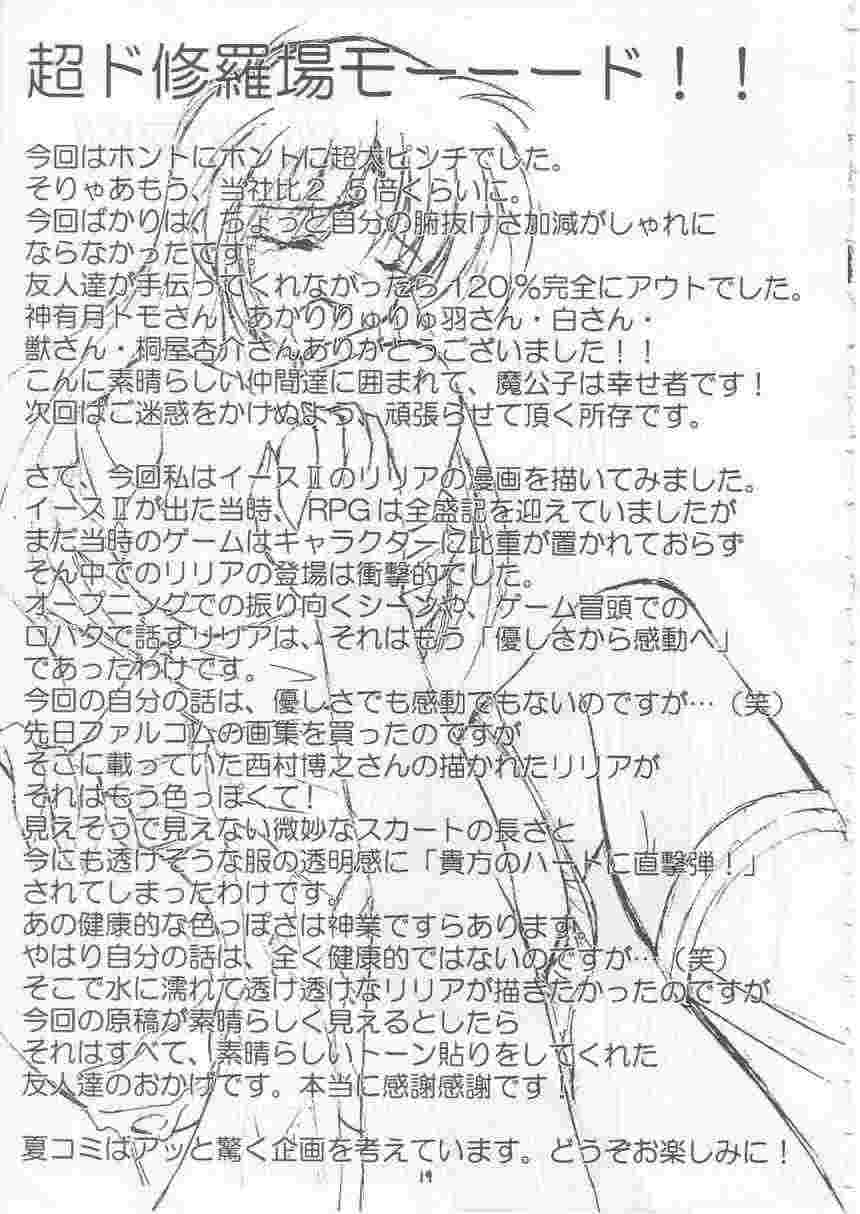 超ド修羅場モーーード！！
今回はホントにホントに超大ピンチでした。
そりゃあもう、当社比２.５倍くらいに。
今回ばかりはちょっと自分の腑抜けさ加減がしゃれに
ならなかったです。
友人達が手伝ってくれなかったら１２０％完全にアウトでした。
神有月トモさん・あかりりゅりゅ羽さん・白さん・
獣さん・桐屋杏介さんありがとうございました！！
こんに素晴らしい仲間達に囲まれて、魔公子は幸せ者です！
次回はご迷惑をかけぬよう、頑張らせて頂く所存です。
さて、今回私はイースⅡのリリアの漫画を描いてみました。
イースⅡが出た当時、RPGは全盛記を迎えていましたが
まだ当時のゲームはキャラクターに比重が置かれておらず
そん中でのリリアの登場は衝撃的でした。
オープニングでの振り向くシーンや、ゲーム冒頭での
ロパクで話すリリアは、それはもう「優しさから感動へ」
であったわけです。
今回の自分の話は、優しさでも感動でもないのですが…（笑）
先日ファルコムの画集を買ったのですが
そこに載っていた西村博之さんの描かれたリリアが
それはもう色っぽくて！
見えそうで見えない微妙なスカートの長さと
今にも透けそうな服の透明感に「貴方のハートに直撃弾！」
されてしまったわけです。
あの健康的な色っぽさは神業ですらあります
やはり自分の話は、全く健康的ではないのですが…（笑）
そこで水に濡れて透け透けなリリアが描きたかったのですが
今回の原稿が素晴らしく見えるとしたら
それはすべて、素晴らしいトーン貼りをしてくれた
友人達のおかげです。本当に感謝感謝です！
夏コミはアッと驚く企画を考えています。どうぞお楽しみに！
19